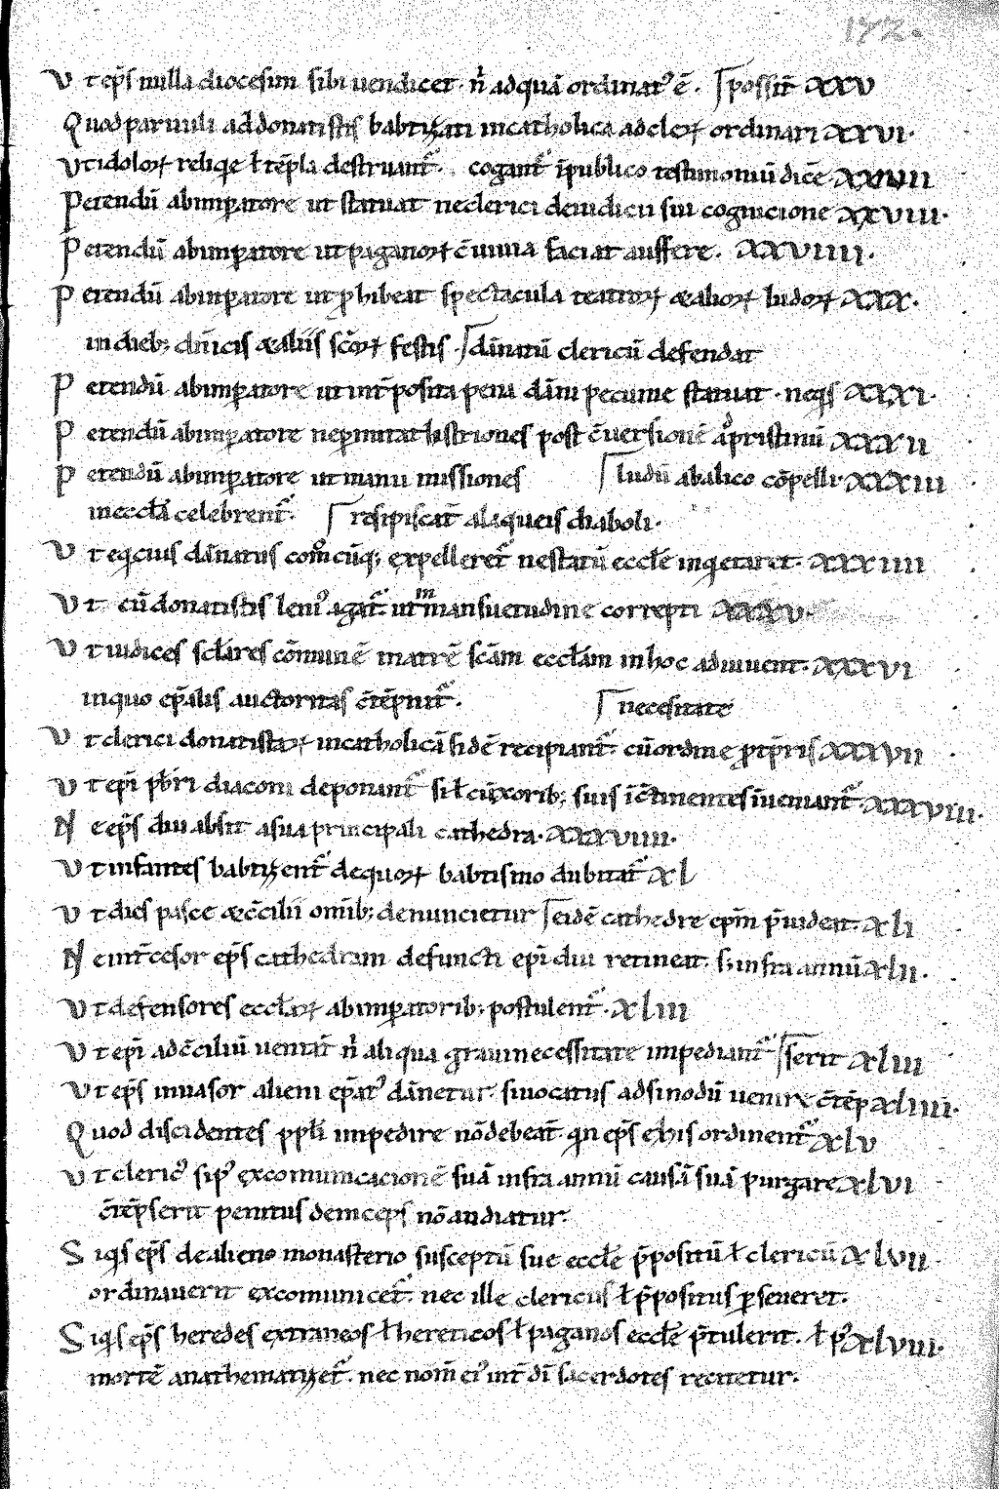 172.
Ut ep̄s nulla diocesim sibi uendicet · n̄ ad quā ordinatꝰ ē · ⌈possit̄ XXV
Quod paruuli ad donatistis babtizati in catholica ad cleꝝ ordinari XXVI ·
Ut idoloꝝ reliqie ł tēpla destruant᷑ · cogant᷑ ī publico testimoniū dicē XXVII
Petendū ab inꝑatore ut statuat ne clerici de iudicii sui cognicione XXVIII ·
Petendū ab inꝑatore ut paganoꝝ c̄uiuia faciat aufferre · XXVIIII ·
Petendū ab inꝑatore ut ꝓhibeat spectacula teatroꝝ & alioꝝ ludoꝝ XXX ·
in dieb; dn̄icis & aliis sc̄oꝝ festis · ⌈dānatū clericū defendat
Petendū ab inꝑatore ut int̄posita pena dāni pecunie statuat · neq̇s XXXI ·
Petendū ab inꝑatore ne ꝑmittat histriones post c̄uersionē a pristinū XXXII
Petendū ab inꝑatore ut manu missiones ⌈ludū ab alico cōpelli · XXXIII
in eccła celebrent᷑ · ⌈resipiscat̄ a laqueis diaboli ·
Ut eqicius dānatus com̊cūq; expelleret᷑ ne statū eccłe inqietaret · XXXIIII
Ut cū donatistis leniꝰ agat᷑ · ut in mansuetudine correpti XXXV ·
Ut iudices scłares cōmunē matrē sc̄am eccłam in hoc adiuuent · XXXVI
in quo ep̄alis auctoritas c̄tēpnit᷑ · ⌈necesitate
Ut clerici donatistaꝝ in catholicā fidē recipiant᷑ · cū ordine ꝓ tp̄ris XXXVII
Ut ep̄i p̄bri diaconi deponant᷑ si ł cū uxorib; suis īc̄tinentes īueniant᷑ · XXXVIII ·
Ne ep̄s diu absit a sua principali cathedra · XXXVIIII ·
Ut infantes babtizent᷑ de quoꝝ babtismo dubitat᷑ XL
Ut dies pasce & c̄cilii omīb; denuncietur ⌈eidē cathedre epm̄ p̄uideat · XLI
Ne int̄cesor ep̄s cathedram defuncti ep̄i diu retineat · s; infra annū XLII ·
Ut defensores eccłaꝝ ab inꝑatorib; postulent᷑ · XLIII
Ut ep̄i ad c̄ciliū ueniāt n̄ aliqua graui necessitate impediant᷑ ⌈serit XLIII
Ut ep̄s inuasor alieni ep̄atꝰ dānetur · si uocatus ad sinodū uenire c̄tēp XLIIII ·
Quod discidentes ppłi impedire nō debeat · qin ep̄s ex his ordinent᷑ XLV
Ut clericꝰ sip̄ excomunicacionē suā infra annū causā suā purgare XLVI
c̄tēpserit penitus deinceps nō audiatur ·
Siqis ep̄s de alieno monasterio susceptū sue eccłe p̄positū ł clericū XLVII
ordinauerit excomunicet᷑ · nec ille clericus ł p̄positus ꝑseueret ·
Siqis ep̄s heredes extraneos ł hereticos ł paganos eccłe p̄tulerit · ł pꝰ XLVIII ·
mortē anathematizet᷑ · nec nom̄ eiꝰ int̄ dī sacerdotes recitetur ·